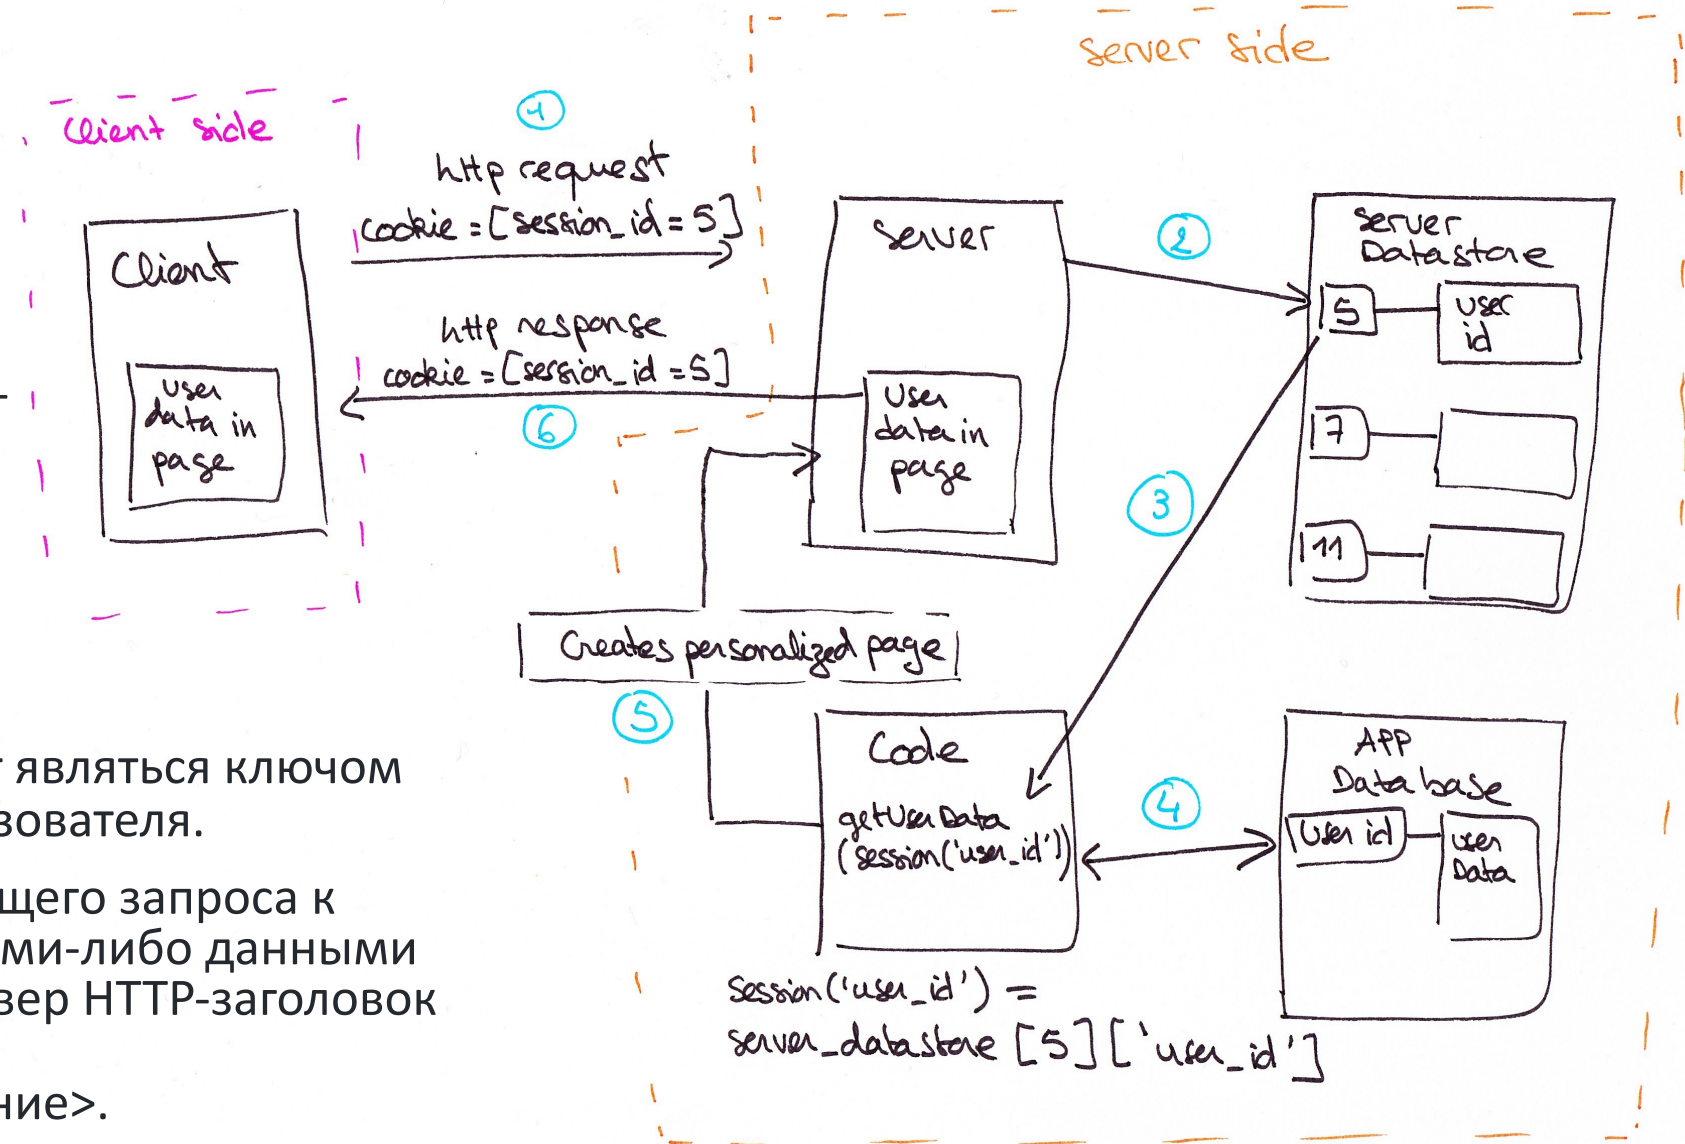 server side
Client side
1
http request
cookie = [session_id = 5]
Client
user
data in
page
http response
cookie = [session_id = 5]
6
Server
User
data in
page
2
Server
Datastore
5
user
id
7
11
3
Creates personalized page
5
Code
getUserData
(session('user_id'))
4
APP
Database
User id
user
Data
session('user_id') =
server_datastore [5] ['user_id']
являться ключом
зователя.
щего запроса к
ми-либо данными
вер HTTP-заголовок
ние>.